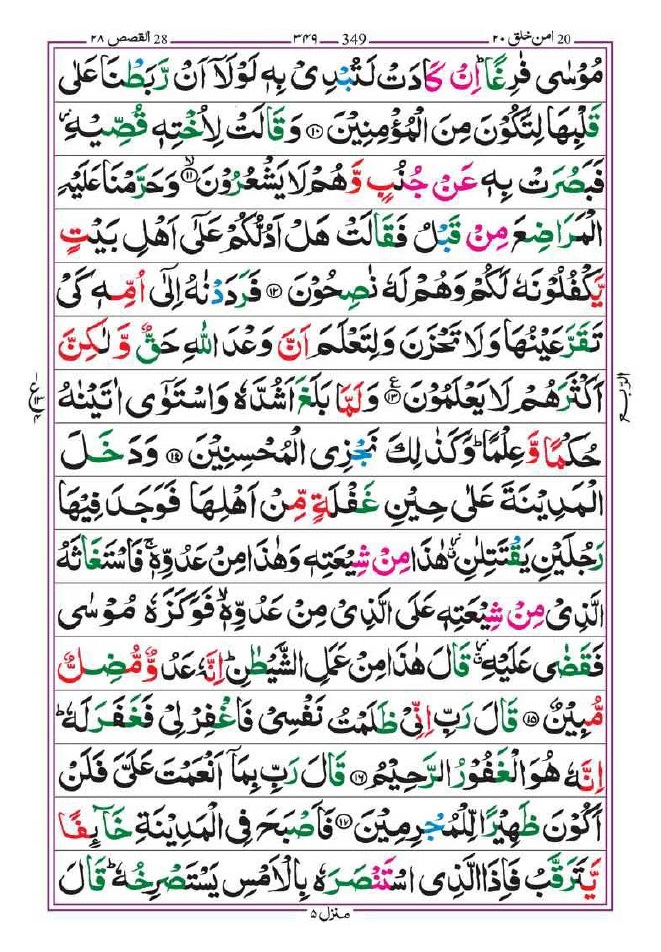 20 امن خلق ۲۰ 349 ۳۴۹ 28 القصص ۲۸
مُوْسٰی فٰرِغًا ؕ اِنْ كَادَتْ لَتُبْدِیْ بِهٖ لَوْلَاۤ اَنْ رَّبَطْنَا عَلٰی
قَلْبِهَا لِتَكُوْنَ مِنَ الْمُؤْمِنِیْنَ ⑩ وَ قَالَتْ لِاُخْتِهٖ قُصِّیْهِ ؗ
فَبَصُرَتْ بِهٖ عَنْ جُنُبٍ وَّ هُمْ لَا یَشْعُرُوْنَ ۙ⑪ وَ حَرَّمْنَا عَلَیْهِ
الْمَرَاضِعَ مِنْ قَبْلُ فَقَالَتْ هَلْ اَدُلُّكُمْ عَلٰۤی اَهْلِ بَیْتٍ
یَّكْفُلُوْنَهٗ لَكُمْ وَ هُمْ لَهٗ نٰصِحُوْنَ ⑫ فَرَدَدْنٰهُ اِلٰۤی اُمِّهٖ كَیْ
تَقَرَّ عَیْنُهَا وَ لَا تَحْزَنَ وَ لِتَعْلَمَ اَنَّ وَعْدَ اللّٰهِ حَقٌّ وَّ لٰكِنَّ
اَكْثَرَهُمْ لَا یَعْلَمُوْنَ ⑬ۧ وَ لَمَّا بَلَغَ اَشُدَّهٗ وَ اسْتَوٰۤی اٰتَیْنٰهُ
الرّبع
حُكْمًا وَّ عِلْمًا ؕ وَ كَذٰلِكَ نَجْزِی الْمُحْسِنِیْنَ ⑭ وَ دَخَلَ
الْمَدِیْنَةَ عَلٰی حِیْنِ غَفْلَةٍ مِّنْ اَهْلِهَا فَوَجَدَ فِیْهَا
رَجُلَیْنِ یَقْتَتِلٰنِ ؗ هٰذَا مِنْ شِیْعَتِهٖ وَ هٰذَا مِنْ عَدُوِّهٖ ۚ فَاسْتَغَاثَهُ
الَّذِیْ مِنْ شِیْعَتِهٖ عَلَی الَّذِیْ مِنْ عَدُوِّهٖ ۙ فَوَكَزَهٗ مُوْسٰی
فَقَضٰی عَلَیْهِ ؗ قَالَ هٰذَا مِنْ عَمَلِ الشَّیْطٰنِ ؕ اِنَّهٗ عَدُوٌّ مُّضِلٌّ
مُّبِیْنٌ ⑮ قَالَ رَبِّ اِنِّیْ ظَلَمْتُ نَفْسِیْ فَاغْفِرْ لِیْ فَغَفَرَ لَهٗ ؕ
اِنَّهٗ هُوَ الْغَفُوْرُ الرَّحِیْمُ ⑯ قَالَ رَبِّ بِمَاۤ اَنْعَمْتَ عَلَیَّ فَلَنْ
اَكُوْنَ ظَهِیْرًا لِّلْمُجْرِمِیْنَ ⑰ فَاَصْبَحَ فِی الْمَدِیْنَةِ خَآىِٕفًا
یَّتَرَقَّبُ فَاِذَا الَّذِی اسْتَنْصَرَهٗ بِالْاَمْسِ یَسْتَصْرِخُهٗ ؕ قَالَ
منزل ۵